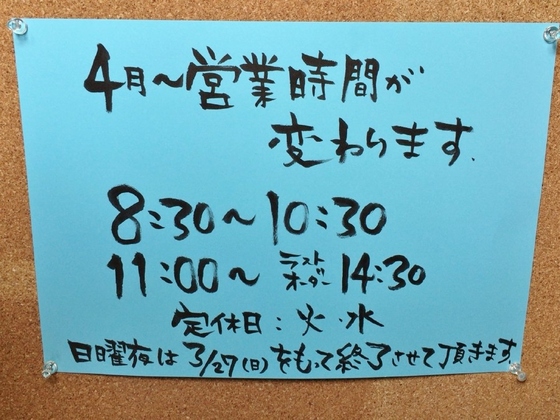 4月～営業時間が
変わります.
8:30～10:30
11:00～ ラストオーダー 14:30
定休日:火.水
日曜夜は3/27(日)をもって終了させて頂きます.